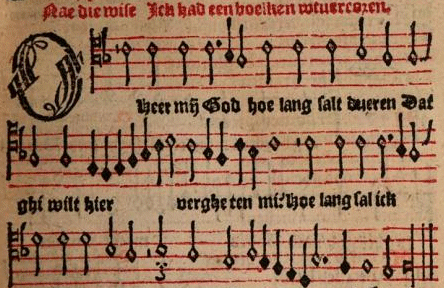 Nae die wise Ick had een boelken wtuercoren.
O Heer mij God hoe lang salt dueren Dat
ghi wilt hier vergheten mi? Hoe lang sal ick
3